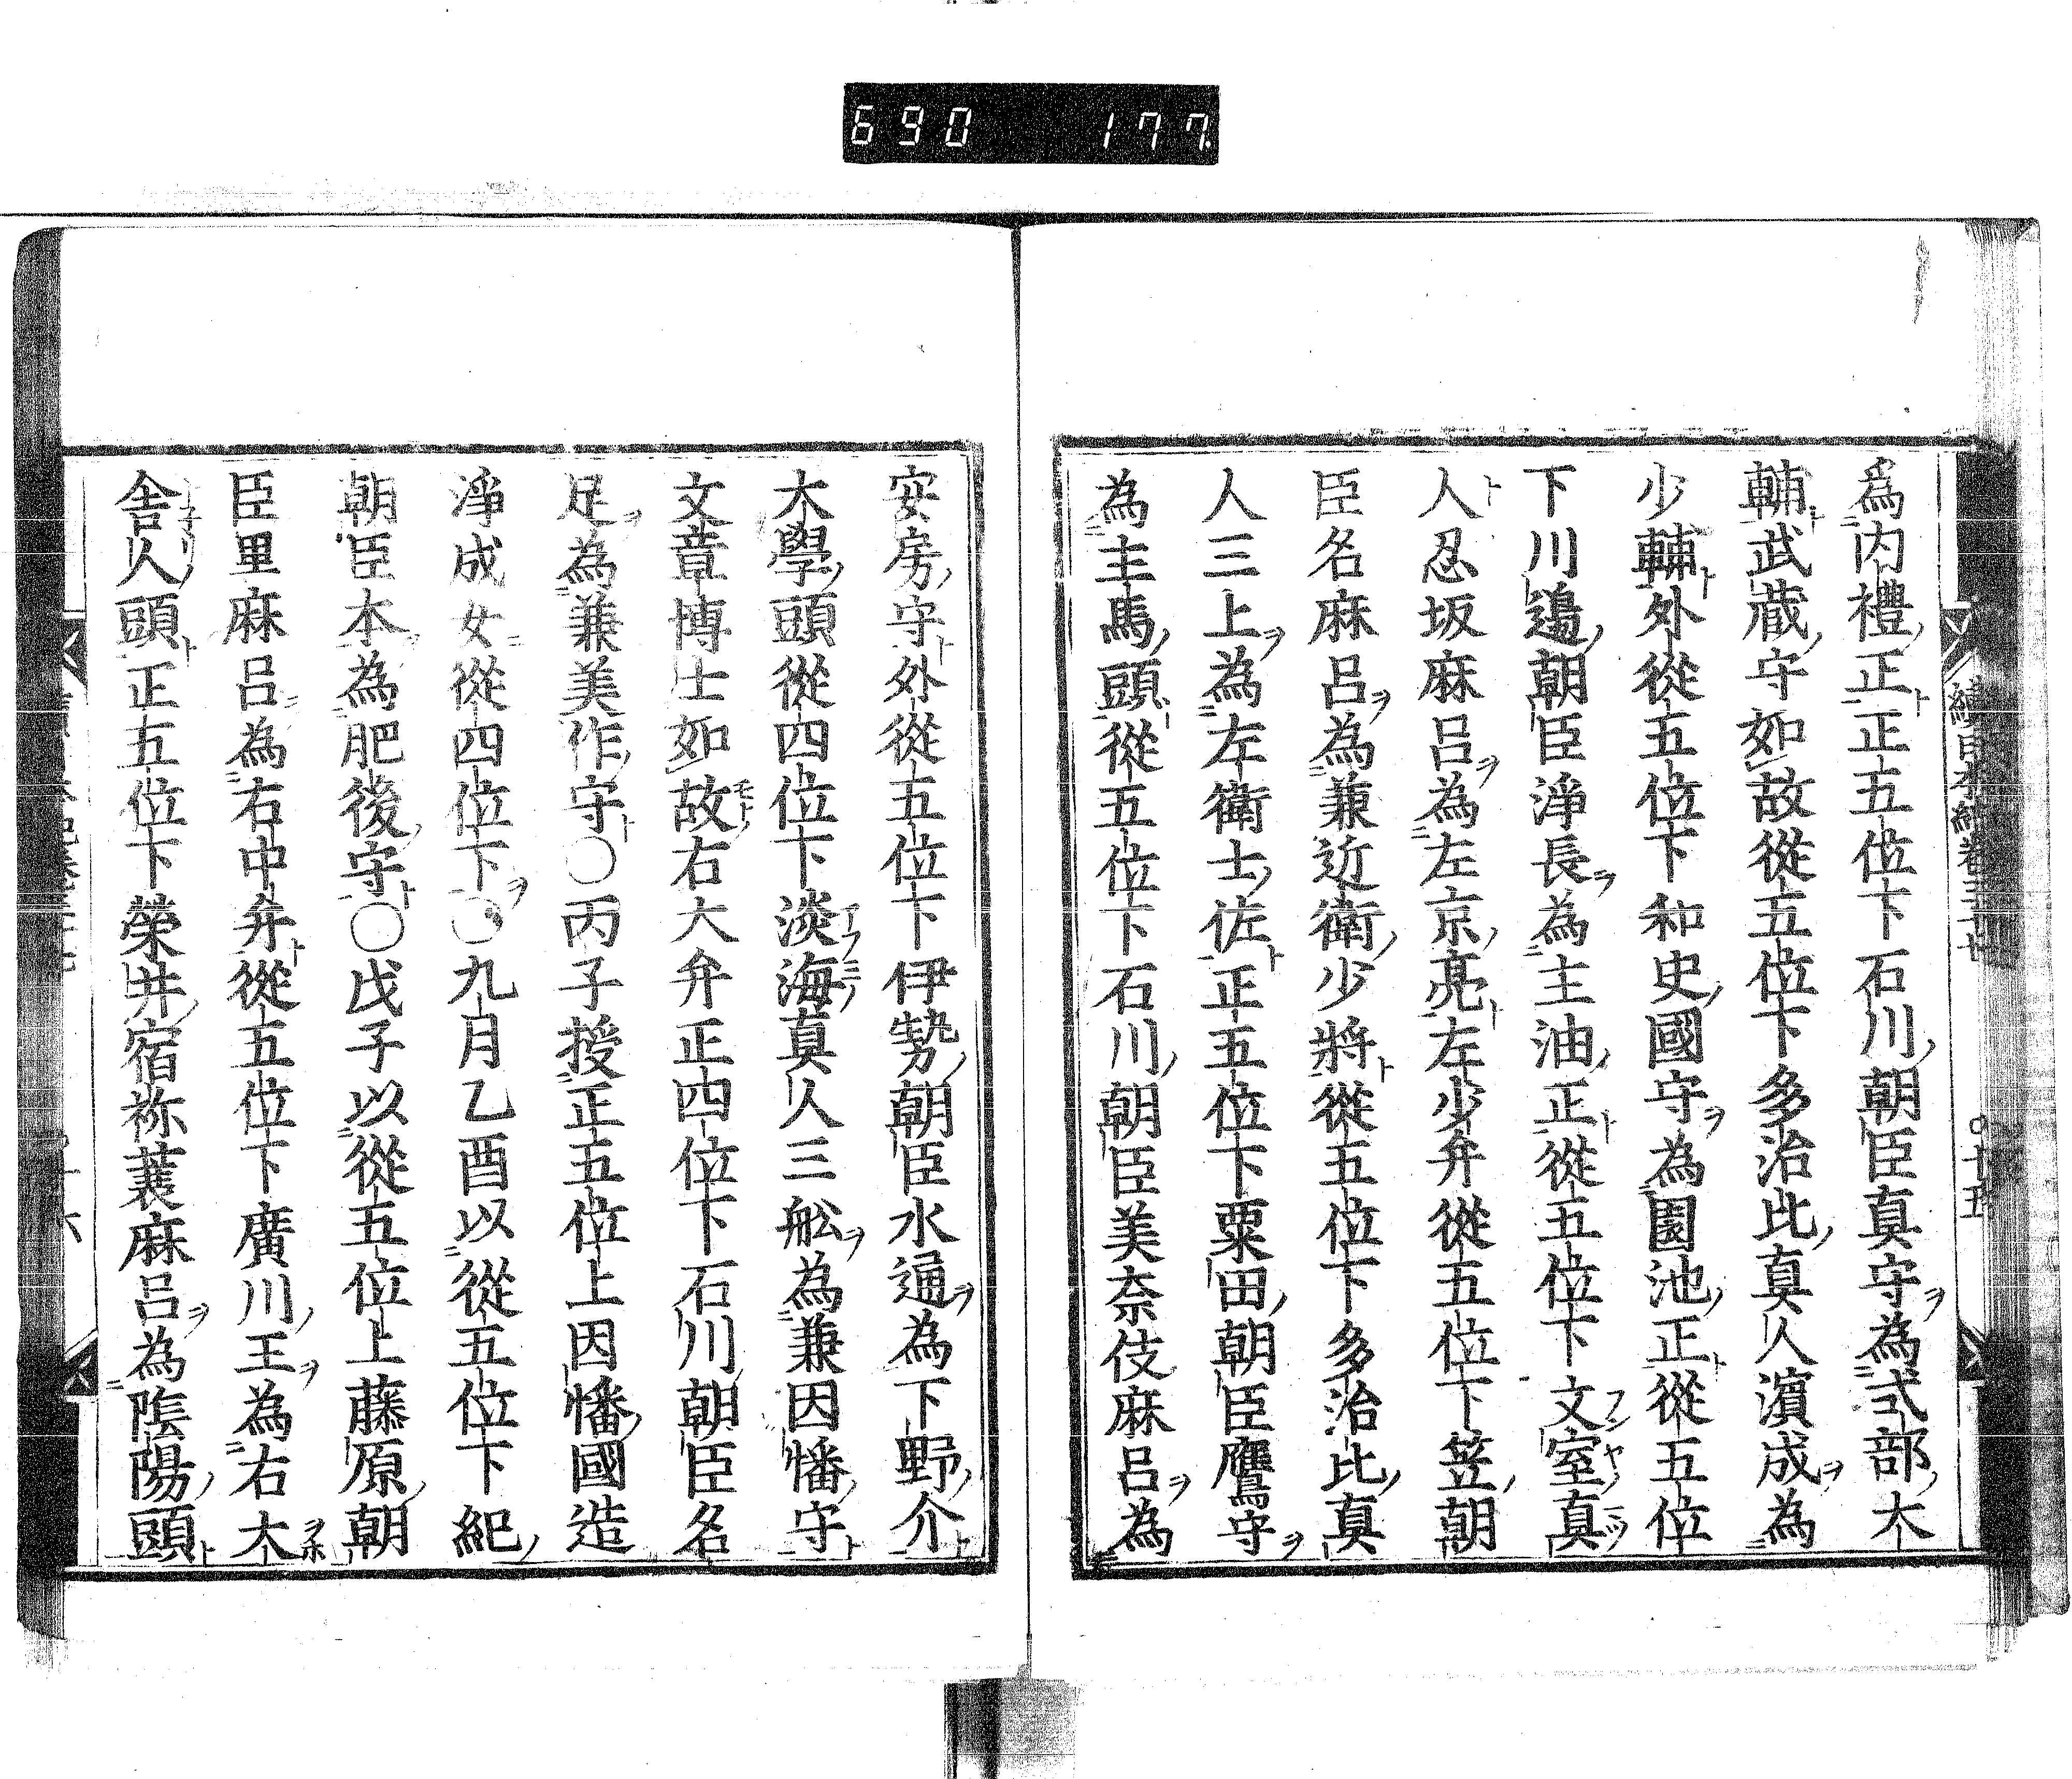 690 177
爲内禮正正五位下石川朝臣真守為式部大
輔武蔵守如故從五位下多治比真人濵成為
少輔外從五位下和史國守為園池正從五位
下川邉朝臣淨長為主油正從五位下文室真
人忍坂麻呂為左京亮左少弁從五位下笠朝
臣名麻呂為兼近衛少將從五位下多治比真
人三上為左衛士佐正五位下粟田朝臣鷹守
為主馬頭從五位下石川朝臣美奈伎麻呂為
安房守外從五位下伊勢朝臣水通為下野介
大學頭從四位下淡海真人三舩為兼因幡守
文章博士如故右大弁正四位下石川朝臣名
足為兼美作守〇丙子授正五位上因幡國造
淨成女從四位下〇九月乙酉以從五位下紀
朝臣本為肥後守〇戊子以從五位上藤原朝
臣里麻呂為右中弁從五位下廣川王為右大
舎人頭正五位下榮井宿祢蓑麻呂為陰陽頭